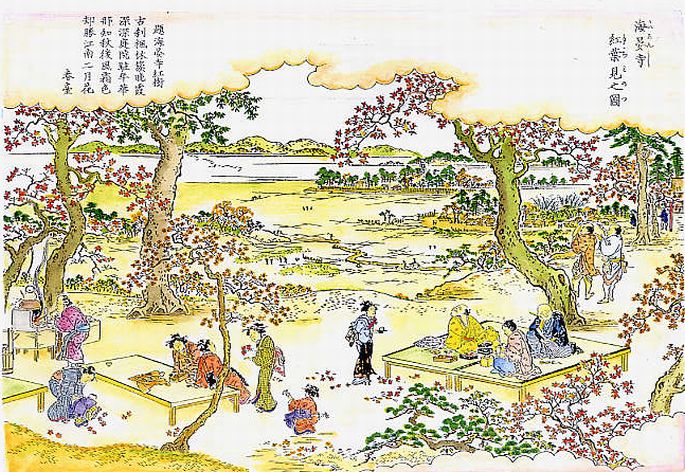 海晏寺
紅葉見之圖
題海晏寺紅樹
古刹楓林簇晩霞
深深庭院駐年華
那知秋後風霜色
却勝江南二月花
春臺